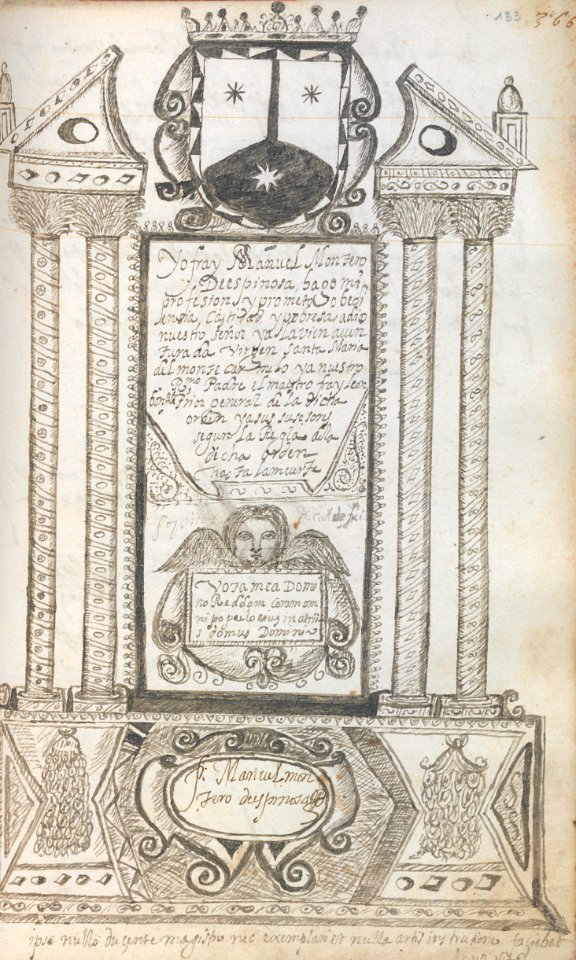 133 366
Yo fray Manuel Montero
y Deespinosa, hago mi
profesion, y prometo obedi
encia, Castidad y pobresa a dios
nuestro señor ya la vien aven
turada Virgen Santa Maria
del monte Carmelo ya nuestro
Rmo Padre el maestro fray leon
Prior general de la dicha
orden yasus susesores
segun la Regla de la
dicha orden
hasta la muerte
Vota mea Domi
no Reddam Coram om
ni populo eius in atrii
s domus Domini
fr. Manuel mon
tero deespinosa
ipse nullo ducente magistro nec exemplari et nulla artis instructione faciebat
Anno